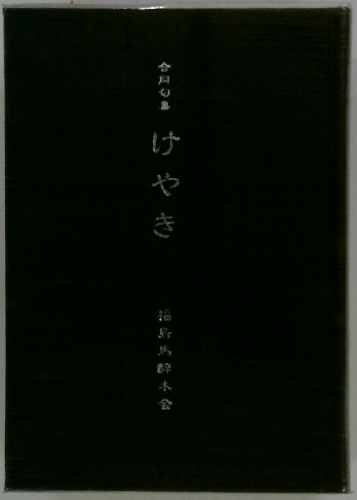 合同句集
けやき
福島馬酔木会